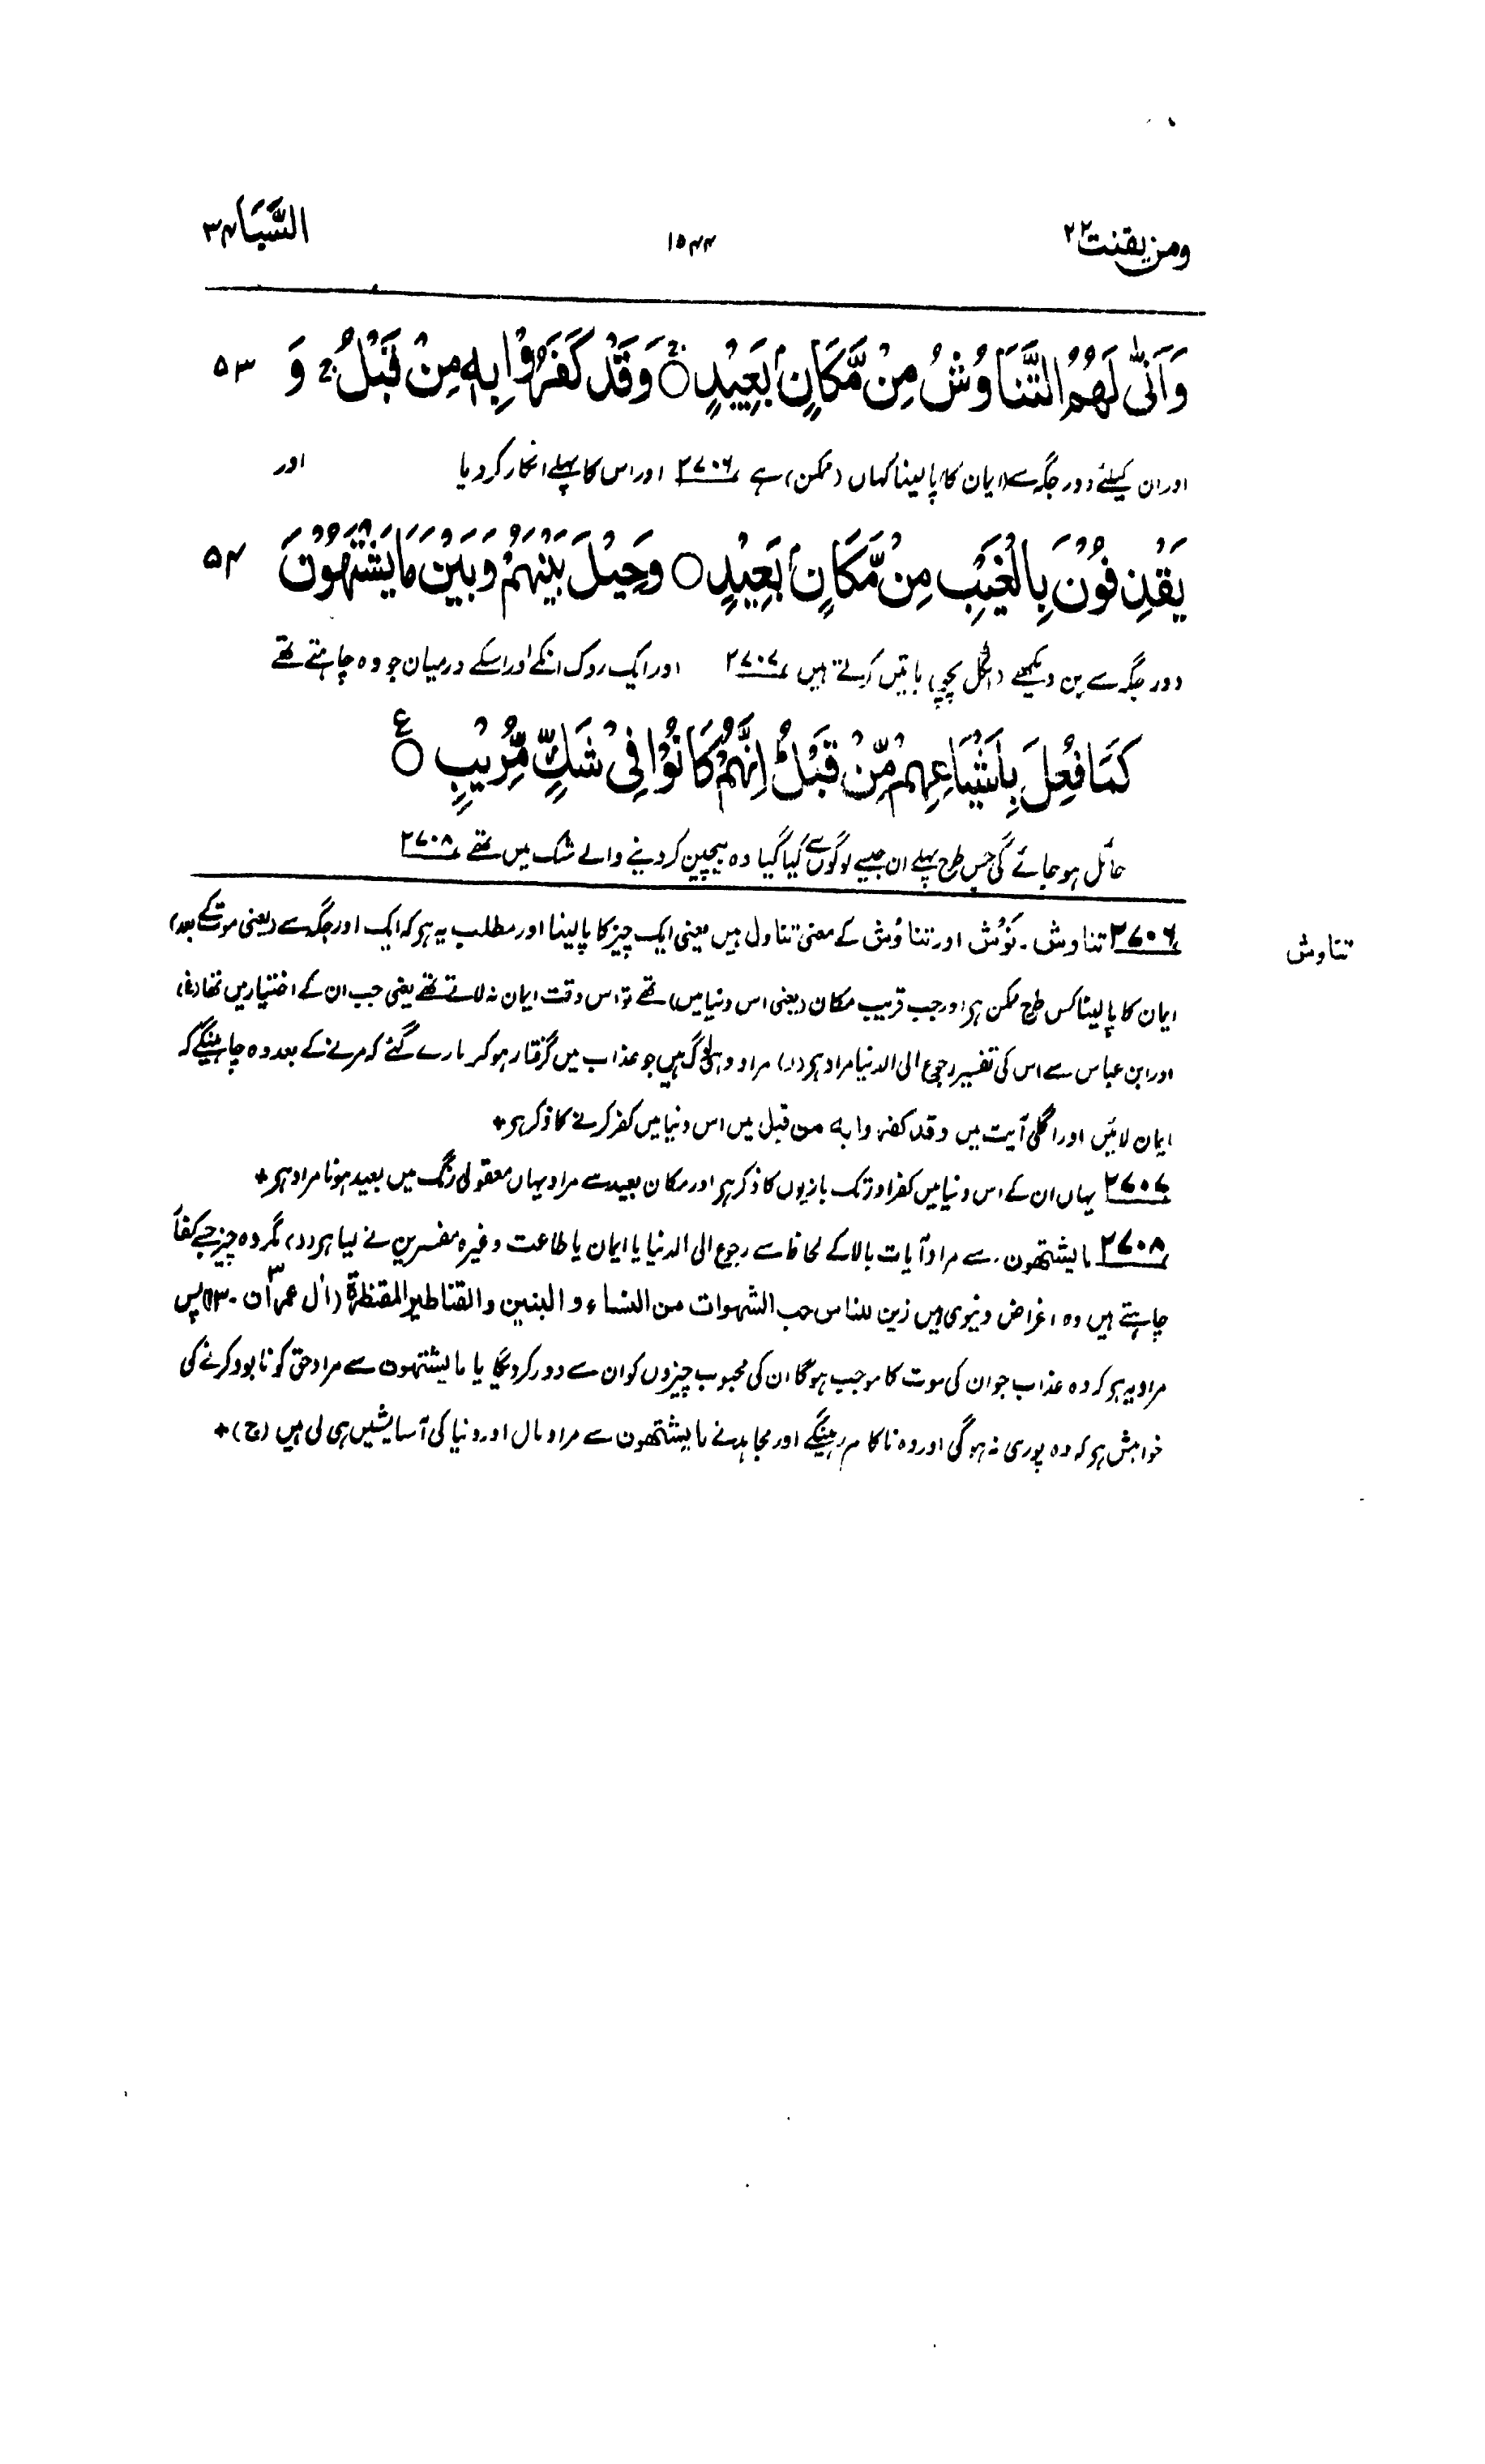 ومن یقنت ۲۲ ۱۵۴۴ السَّبَا ۳۴
وَاَنّٰی لَهُمُ التَّنَاوُشُ مِنْ مَّكَانٍۭ بَعِيْدٍ ۝ۚ وَقَدْ كَفَرُوْا بِهٖ مِنْ قَبْلُ ۚ وَ ۵۳
اور ان کیلئے دور جگہ سے (ایمان کا) پالینا کہاں (ممکن) ہے ۲۷۰۶ اور اس کا پہلے انکار کر دیا اور
يَقْذِفُوْنَ بِالْغَيْبِ مِنْ مَّكَانٍۭ بَعِيْدٍ ۝ وَحِيْلَ بَيْنَهُمْ وَبَيْنَ مَا يَشْتَهُوْنَ ۵۴
دور جگہ سے بن دیکھے (اٹکل پچو) باتیں کرتے ہیں ۲۷۰۷ اور ایک روک انکے اور اسکے درمیان جو وہ چاہتے تھے
كَمَا فُعِلَ بِاَشْيَاعِهِمْ مِّنْ قَبْلُ ؕ اِنَّهُمْ كَانُوْا فِيْ شَكٍّ مُّرِيْبٍ ۝ ع
حائل ہو جائے گی جس طرح پہلے ان جیسے لوگوں سے کیا گیا وہ بیچین کر دینے والے شک میں تھے ۲۷۰۸
۲۷۰۶ تناوش۔ نَوْش اور تناوُش کے معنی تناول ہیں یعنی ایک چیز کا پالینا اور مطلب یہ ہر کہ ایک اور جگہ سے (یعنی موت کے بعد)
تناوش
ایمان کا پالینا کس طرح ممکن ہر اور جب قریب مکان (یعنی اس دنیا میں) تھے تو اس وقت ایمان نہ لاتے تھے یعنی جب ان کے اختیار میں تھا (غ)
اور ابن عباس سے اس کی تفسیر رجوع الی الدنیا مراد ہر (ر) مراد وہی لوگ ہیں جو عذاب میں گرفتار ہو کر مارے گئے کہ مرنے کے بعد وہ چاہینگے کہ
ایمان لائیں اور اگلی آیت میں وقد کفروا به من قبل میں اس دنیا میں کفر کرنے کا ذکر ہر+
۲۷۰۷ یہاں ان کے اس دنیا میں کفر اور تک بازیوں کا ذکر ہر اور مکان بعید سے مراد یہاں معقولی رنگ میں بعید ہونا مراد ہر+
۲۷۰۸ مایشتھون۔ سے مراد آیات بالا کے لحاظ سے رجوع الی الدنیا یا ایمان یا طاعت وغیرہ مفسرین نے لیا ہر (ر) مگر وہ چیز جسے کفار
چاہتے ہیں وہ اغراض دنیوی ہیں زین للناس حب الشهوات من النساء و البنین والقناطیر المقنطرة (اٰل عمران ۳۔ ۱۳) پس
مراد یہ ہر کہ وہ عذاب جو ان کی موت کا موجب ہوگا ان کی محبوب چیزوں کو ان سے دور کر دیگا یا مایشتهون سے مراد حق کو نابود کرنے کی
خواہش ہر کہ وہ پوری نہ ہو گی اور وہ ناکام رہینگے اور مجاہد نے مایشتھون سے مراد مال اور دنیا کی آسایشیں ہی لی ہیں (ج)+